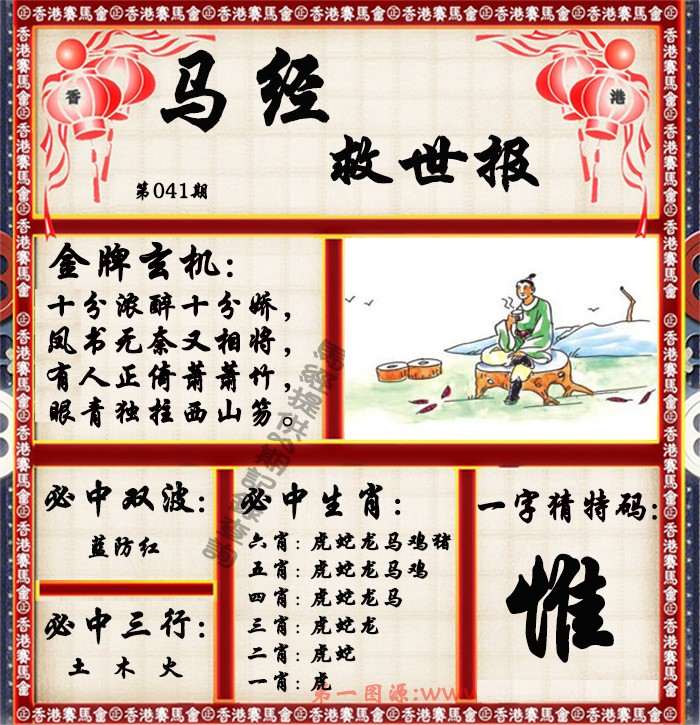 香港賽馬會
香 港
马经
救世报
第041期
金牌玄机:
十分浓醉十分娇，
凤书无奈又相将，
有人正倚萧萧竹，
眼青独拄西山笏。
必中双波:
蓝防红
必中三行:
土 木 火
必中生肖:
六肖: 虎蛇龙马鸡猪
五肖: 虎蛇龙马鸡
四肖: 虎蛇龙马
三肖: 虎蛇龙
二肖: 虎蛇
一肖: 虎
一字猜特码:
惟
第一图源:www